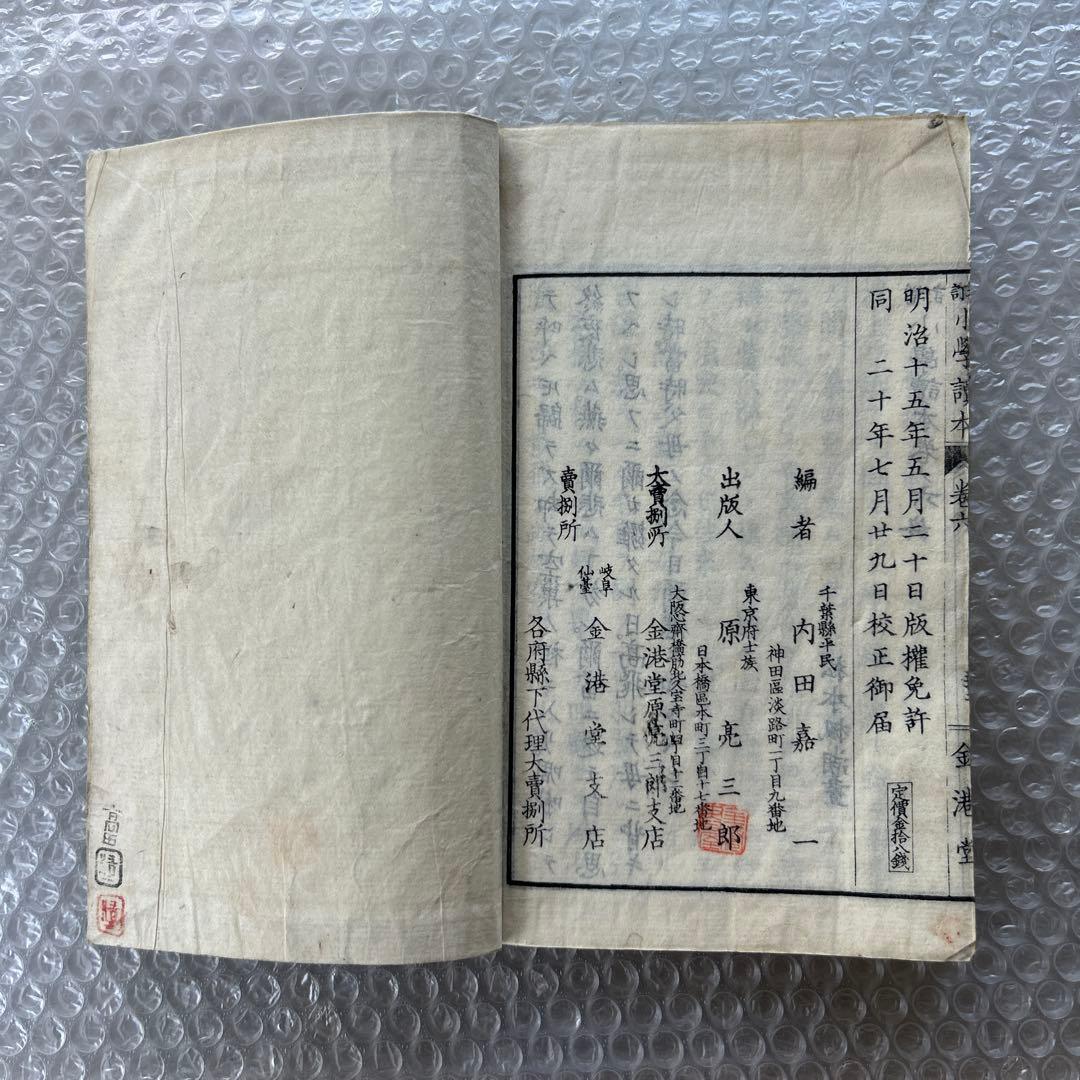 小學讀本 卷六 金港堂
明治十五年五月二十日版權免許
同 二十年七月廿九日校正御届
定價金拾八錢
千葉縣平民
編者 內田嘉一
神田區淡路町一丁目九番地
東京府士族
出版人 原亮三郎
日本橋區本町三丁目十七番地
大賣捌所 金港堂原亮三郎支店
大阪心齋橋筋北久寶寺町四丁目十二番地
賣捌所
岐阜
仙臺
金港堂支店
各府縣下代理大賣捌所